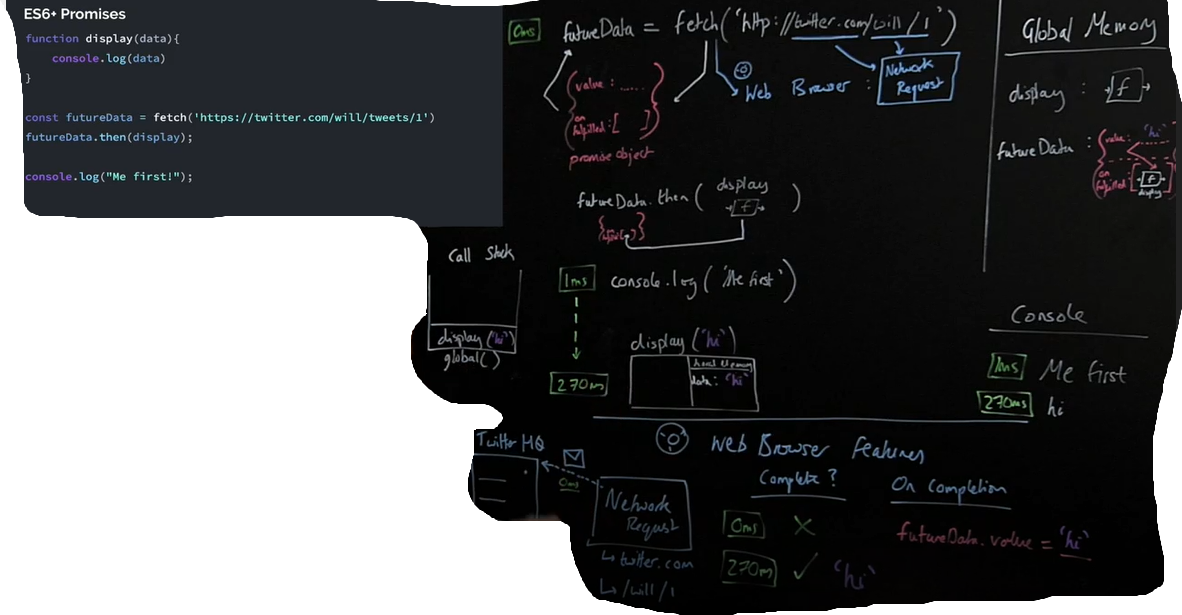 ES6+ Promises
function display(data){
console.log(data)
}
const futureData = fetch('https://twitter.com/will/tweets/1')
futureData.then(display);
console.log("Me first!");
0ms
futureData = fetch('http://twitter.com/will/1')
{value : ......
on fulfilled:[ ]}
promise object
Web Browser :
Network
Request
futureData.then( display )
f
1ms
console.log('Me first')
270ms
display('hi')
Local Memory
data: 'hi'
Call Stack
display('hi')
global()
Global Memory
display : f
futureData :
value: 'hi'
on
fulfilled:
f
display
Console
1ms Me first
270ms hi
Web Browser Features
Twitter HQ
0ms
Network
Request
↳ twitter.com
↳ /will/1
Complete?
0ms X
270ms ✓ 'hi'
On Completion
futureData.value = 'hi'